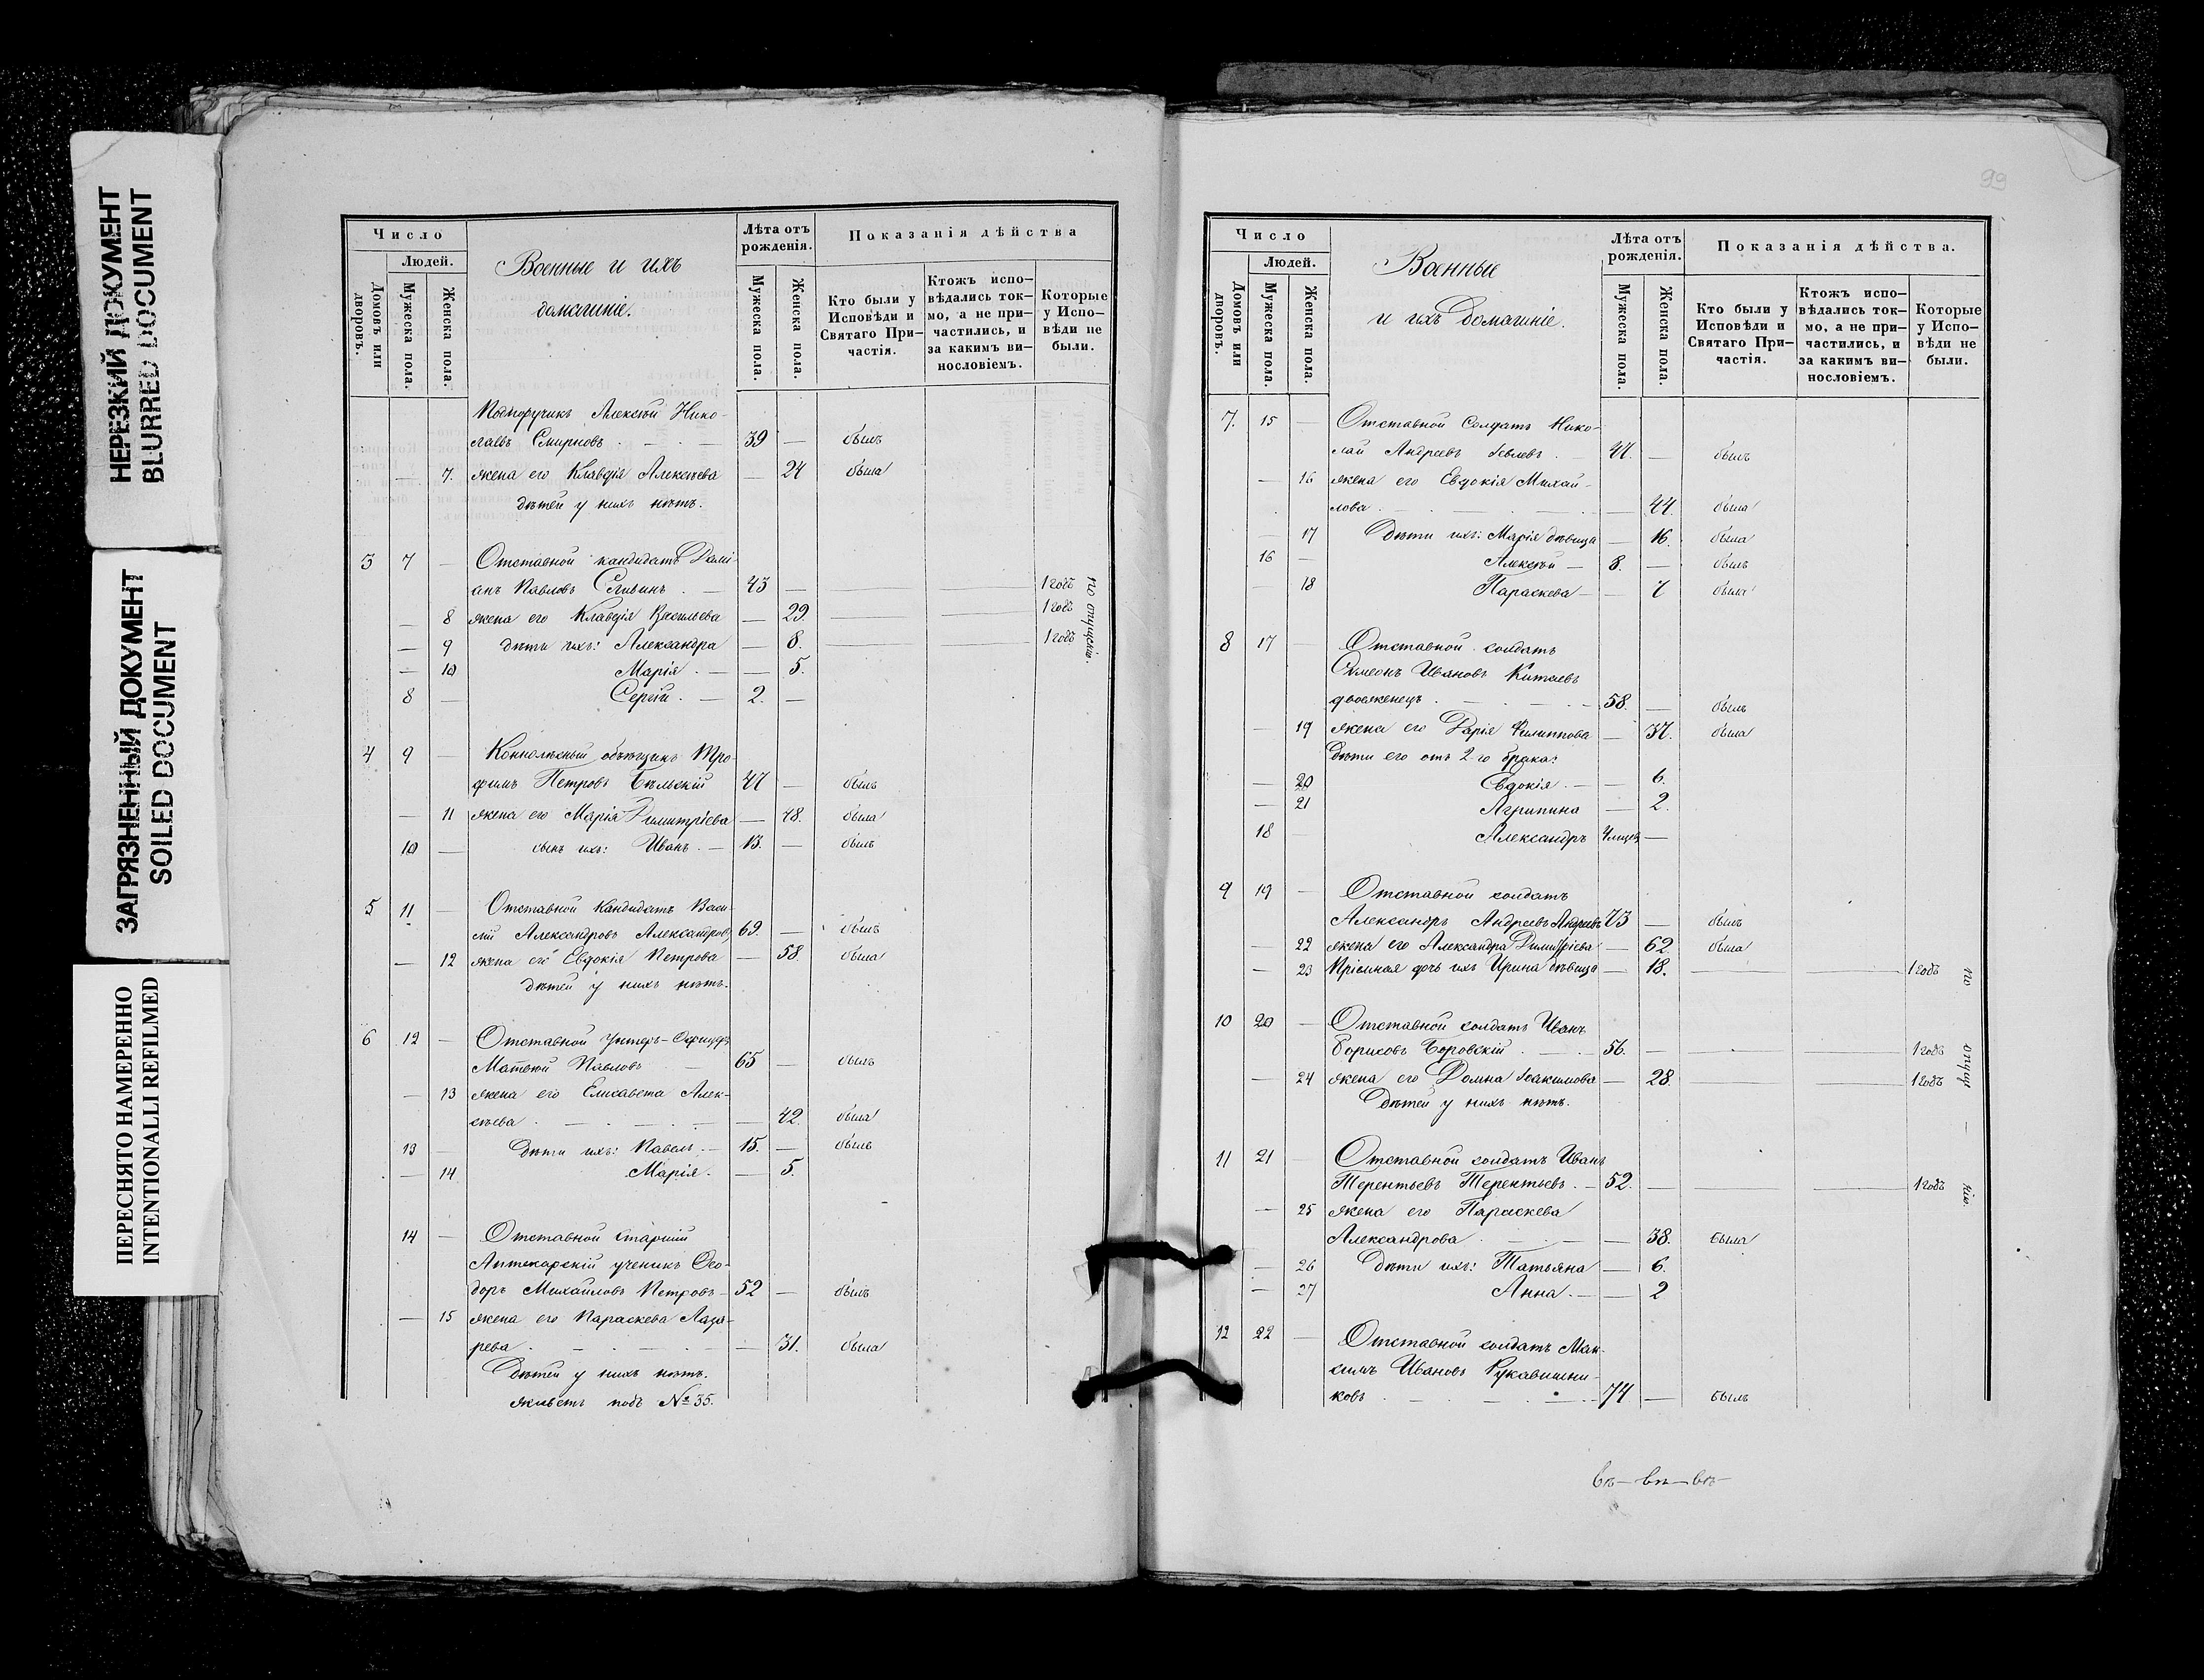 НЕРЕЗКИЙ ДОКУМЕНТ
BLURRED DOCUMENT
ЗАГРЯЗНЕННЫЙ ДОКУМЕНТ
SOILED DOCUMENT
ПЕРЕСНЯТО НАМЕРЕННО
INTENTIONALLI REFILMED
Число
Людей.
Домовъ или дворовъ.
Мужеска пола.
Женска пола.
Военные и ихъ
домашніе.
Лѣта отъ рожденія.
Мужеска пола.
Женска пола.
Показанія дѣйства
Кто были у Исповѣди и Святаго При-частія.
Ктожъ испо-вѣдались ток-мо, а не при-частились, и за какимъ ви-нословіемъ.
Которые у Испо-вѣди не были.
Подпоручикъ Алексѣй Нико-
лаевъ Смирновъ . — . — 39 — былъ
— 7. жена его Клавдія Алексѣева — 24 была
дѣтей у нихъ нѣтъ.
3 7 — Отставной кандидатъ Дамі-
анъ Павловъ . — 43 — 1 годъ
— 8 жена его Клавдія Васильева — 29. 1 годъ
— 9 дѣти ихъ: Александра — 8. 1 годъ
по опущенію.
— 10 Марія . — — 5.
8 — Сергій . — 2. —
4 9 — Коннолѣсный объѣщикъ Тро-
фимъ Петровъ Бѣльскій 47 — былъ
— 11 жена его Марія Димитріева — 48. была
10 — сынъ ихъ: Иванъ . — 13. — былъ
5 11 — Отставной Кандидатъ Васи-
лій Александровъ Александровъ 69. — былъ
— 12 жена его Евдокія Петрова — 58 была
дѣтей у нихъ нѣтъ.
6 12 — Отставной Унтеръ-Офицеръ
Матвѣй Павловъ — 65 — былъ
— 13 жена его Елисавета Алек-
сѣева . — . — . — — 42. была
13 — Дѣти ихъ: Павелъ . — 15. — былъ
— 14 Марія . — 5.
14 — Отставной Старшій
Аптекарскій ученикъ Ѳео-
доръ Михайловъ Петровъ — 52 — былъ
— 15 жена его Параскева Лаза-
рева . — . — . — 31. была
Дѣтей у нихъ нѣтъ.
живетъ подъ № 35.
99
Число
Людей.
Домовъ или дворовъ.
Мужеска пола.
Женска пола.
Военные
и ихъ Домашніе.
Лѣта отъ рожденія.
Мужеска пола.
Женска пола.
Показанія дѣйства.
Кто были у Исповѣди и Святаго При-частія.
Ктожъ испо-вѣдались ток-мо, а не при-частились, и за какимъ ви-нословіемъ.
Которые у Испо-вѣди не были.
7. 15 — Отставной Солдатъ Нико-
лай Андреевъ . — — былъ
— 16 жена его Евдокія Михай-
лова . — . — . — — 44. была
— 17 Дѣти ихъ: Марія дѣвица — 16. была
16 — Алексѣй — 8. — былъ
18 Параскева — — 7 была
8 17 — Отставной солдатъ
Симеонъ Ивановъ Китаевъ
двоеженецъ . — . — 58. — былъ
— 19 жена его Дарія Филиппова — 37. была
Дѣти его отъ 2-го брака:
— 20 Евдокія . — — 6.
— 21 Агрипина — 2.
18 — Александръ —
9 19 — Отставной солдатъ
Александръ Андреевъ Андреевъ 73 — былъ
— 22 жена его Александра Димитріева — 62 была
— 23 Пріемная дочь ихъ Ирина дѣвица — 18. 1 годъ
10 20 — Отставной солдатъ Иванъ
Борисовъ Боровскій . — . — 56. — 1 годъ
— 24 жена его Домна Іоакимова — 28. 1 годъ
Дѣтей у нихъ нѣтъ.
11 21 — Отставной солдатъ Иванъ
Терентьевъ Терентьевъ . — 52. — 1 годъ
по опуще — нію.
— 25 жена его Параскева
Александрова . — . — — 38. была
— 26 Дѣти ихъ: Татьяна — 6.
— 27 Анна . — — 2
12 22 — Отставной солдатъ Мак-
симъ Ивановъ Рукавишни-
ковъ . — . — . — 74 — былъ